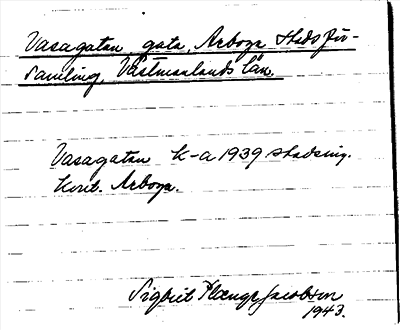 Vasagatan gata, Arboga Stadsför-
samling, Västmanlands län.
Vasagatan k-a 1939 stadsing.
kont. Arboga.
Sigbrit Plænge Jacobson
1943.